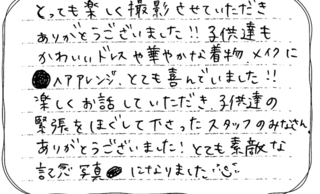 とっても楽しく撮影させていただき
ありがとうございました!!子供達も
かわいいドレスや華やかな着物、メイクに
ヘアアレンジ、とても喜んでいました!!
楽しくお話していただき、子供達の
緊張をほぐして下さったスタッフのみなさん
ありがとうございました!とても素敵な
記念写真になりました